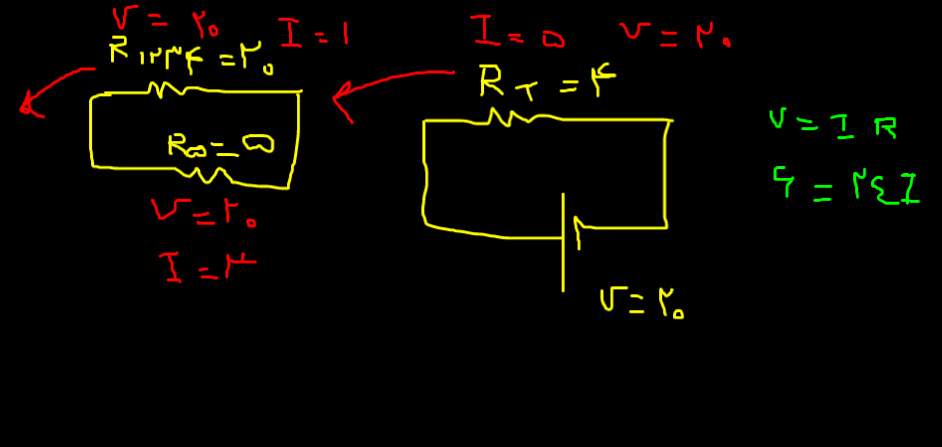 V = ۲۰
I = ۱
R۱۲۳۴ = ۲۰
R۵ = ۵
V = ۲۰
I = ۴
I = ۵ V = ۲۰
R T = ۴
V = ۲۰
V = I R
۶ = ۲۴ I